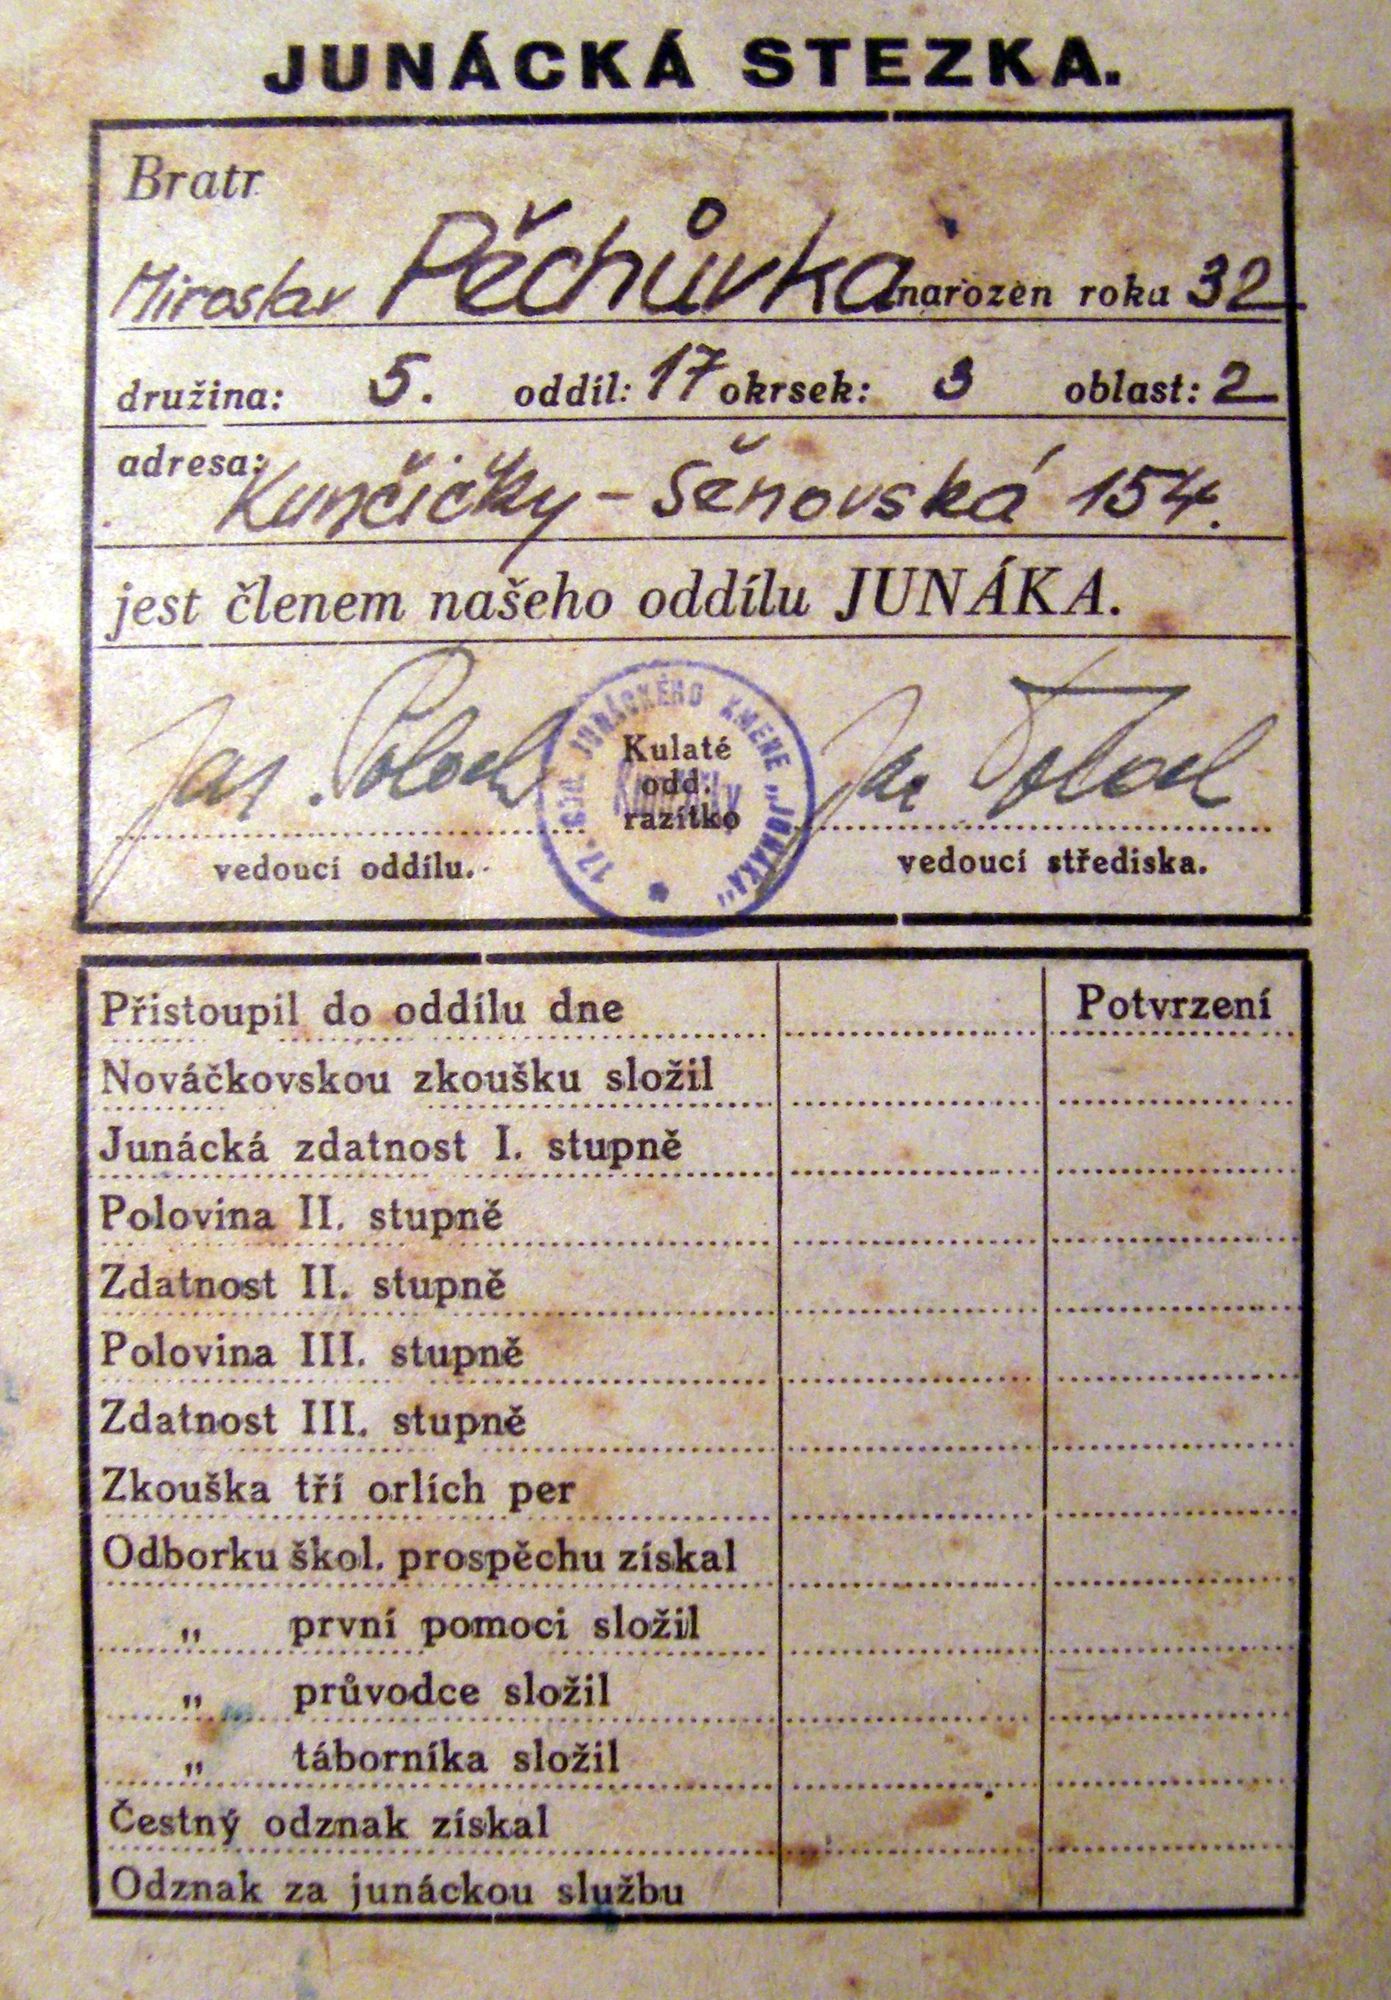 JUNÁCKÁ STEZKA.
Bratr
Miroslav Pěchůvka narozen roku 32
družina: 5. oddíl: 17 okrsek: 3 oblast: 2
adresa: Kunčičky - Šěnovská 154.
jest členem našeho oddílu JUNÁKA.
17. JUNÁCKÉHO KMENE „JUNÁKA"
Kulaté
odd.
razítko
vedoucí oddílu. vedoucí střediska.
Přistoupil do oddílu dne Potvrzení
Nováčkovskou zkoušku složil
Junácká zdatnost I. stupně
Polovina II. stupně
Zdatnost II. stupně
Polovina III. stupně
Zdatnost III. stupně
Zkouška tří orlích per
Odborku škol. prospěchu získal
„ první pomoci složil
„ průvodce složil
„ táborníka složil
Čestný odznak získal
Odznak za junáckou službu